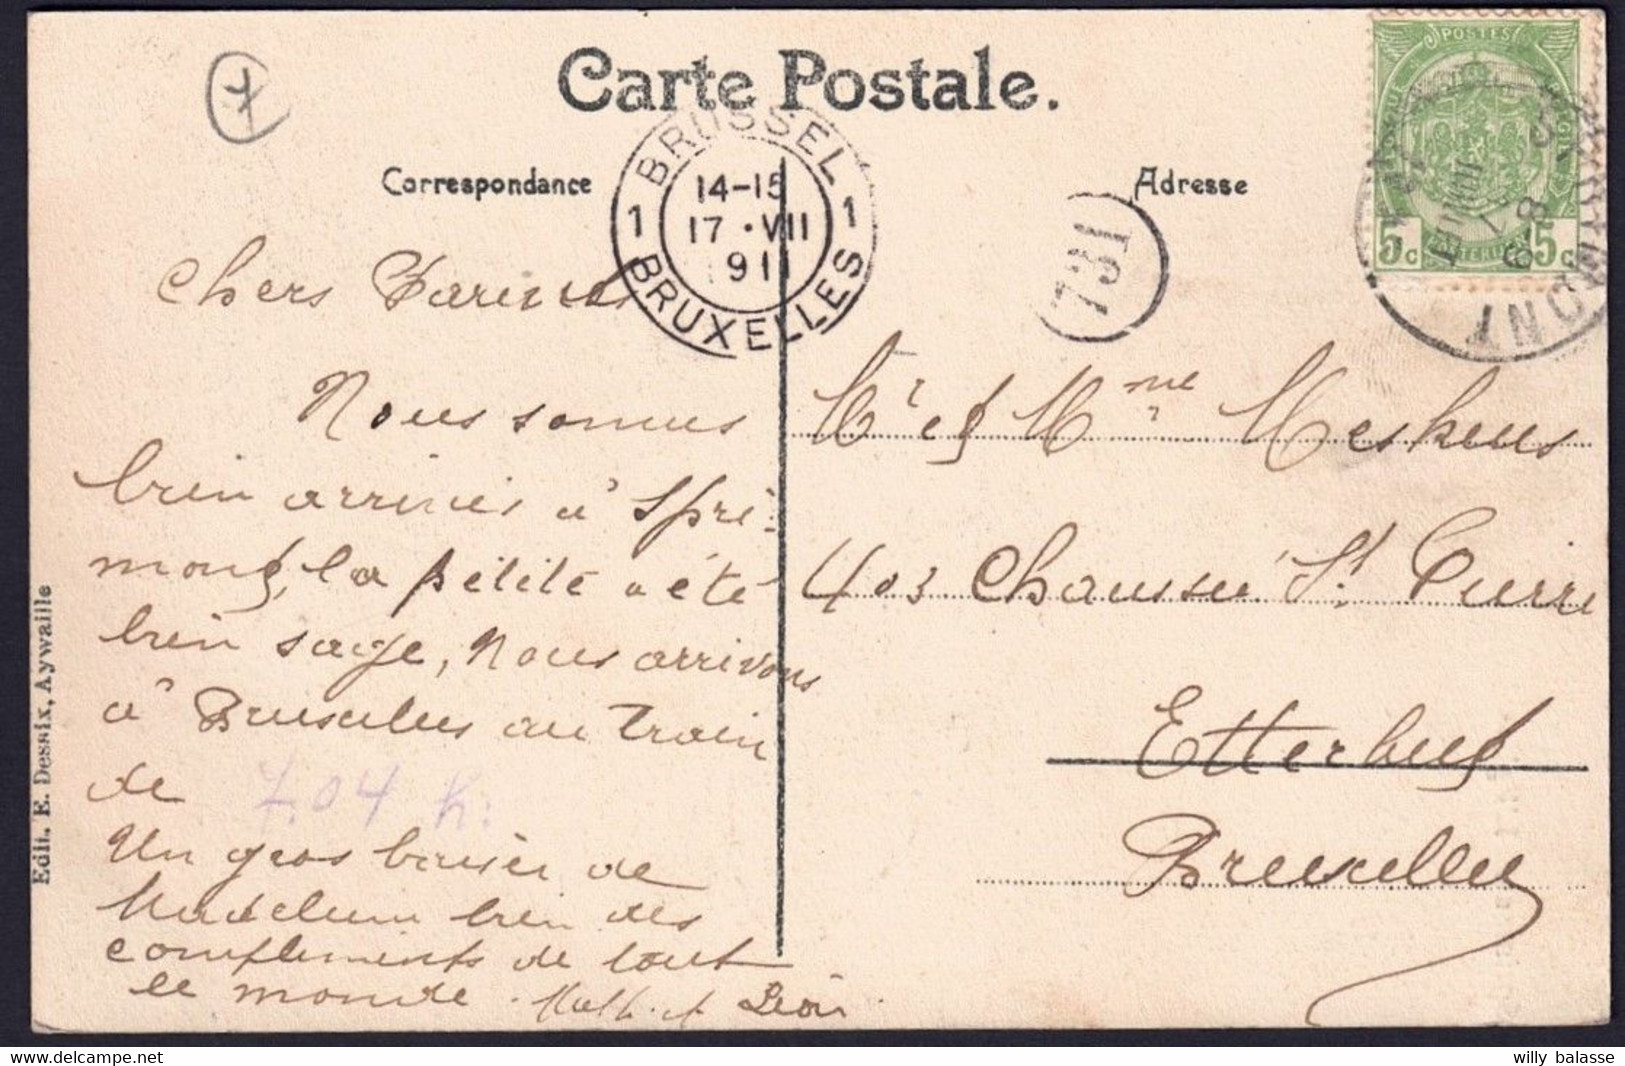 Carte Postale.
Correspondance
Adresse
7
BRUSSEL
14-15
17 · VII
191
1 1
BRUXELLES
731
POSTES
5c 5c
MONT
Chers Parents
Nous sommes
bien arrivés à Spri-
mont, la petite a été
bien sage, Nous arrivons
à Bruxelles au train
de 7.04 h.
Un gros baiser de
Madeleine bien des
compliments de tout
le monde. Math. et Léon
Mr et Mme Meskens
403 Chaussée St. Pierre
Etterbeek
Bruxelles
Edit. E. Dessix, Aywaille
willy balasse